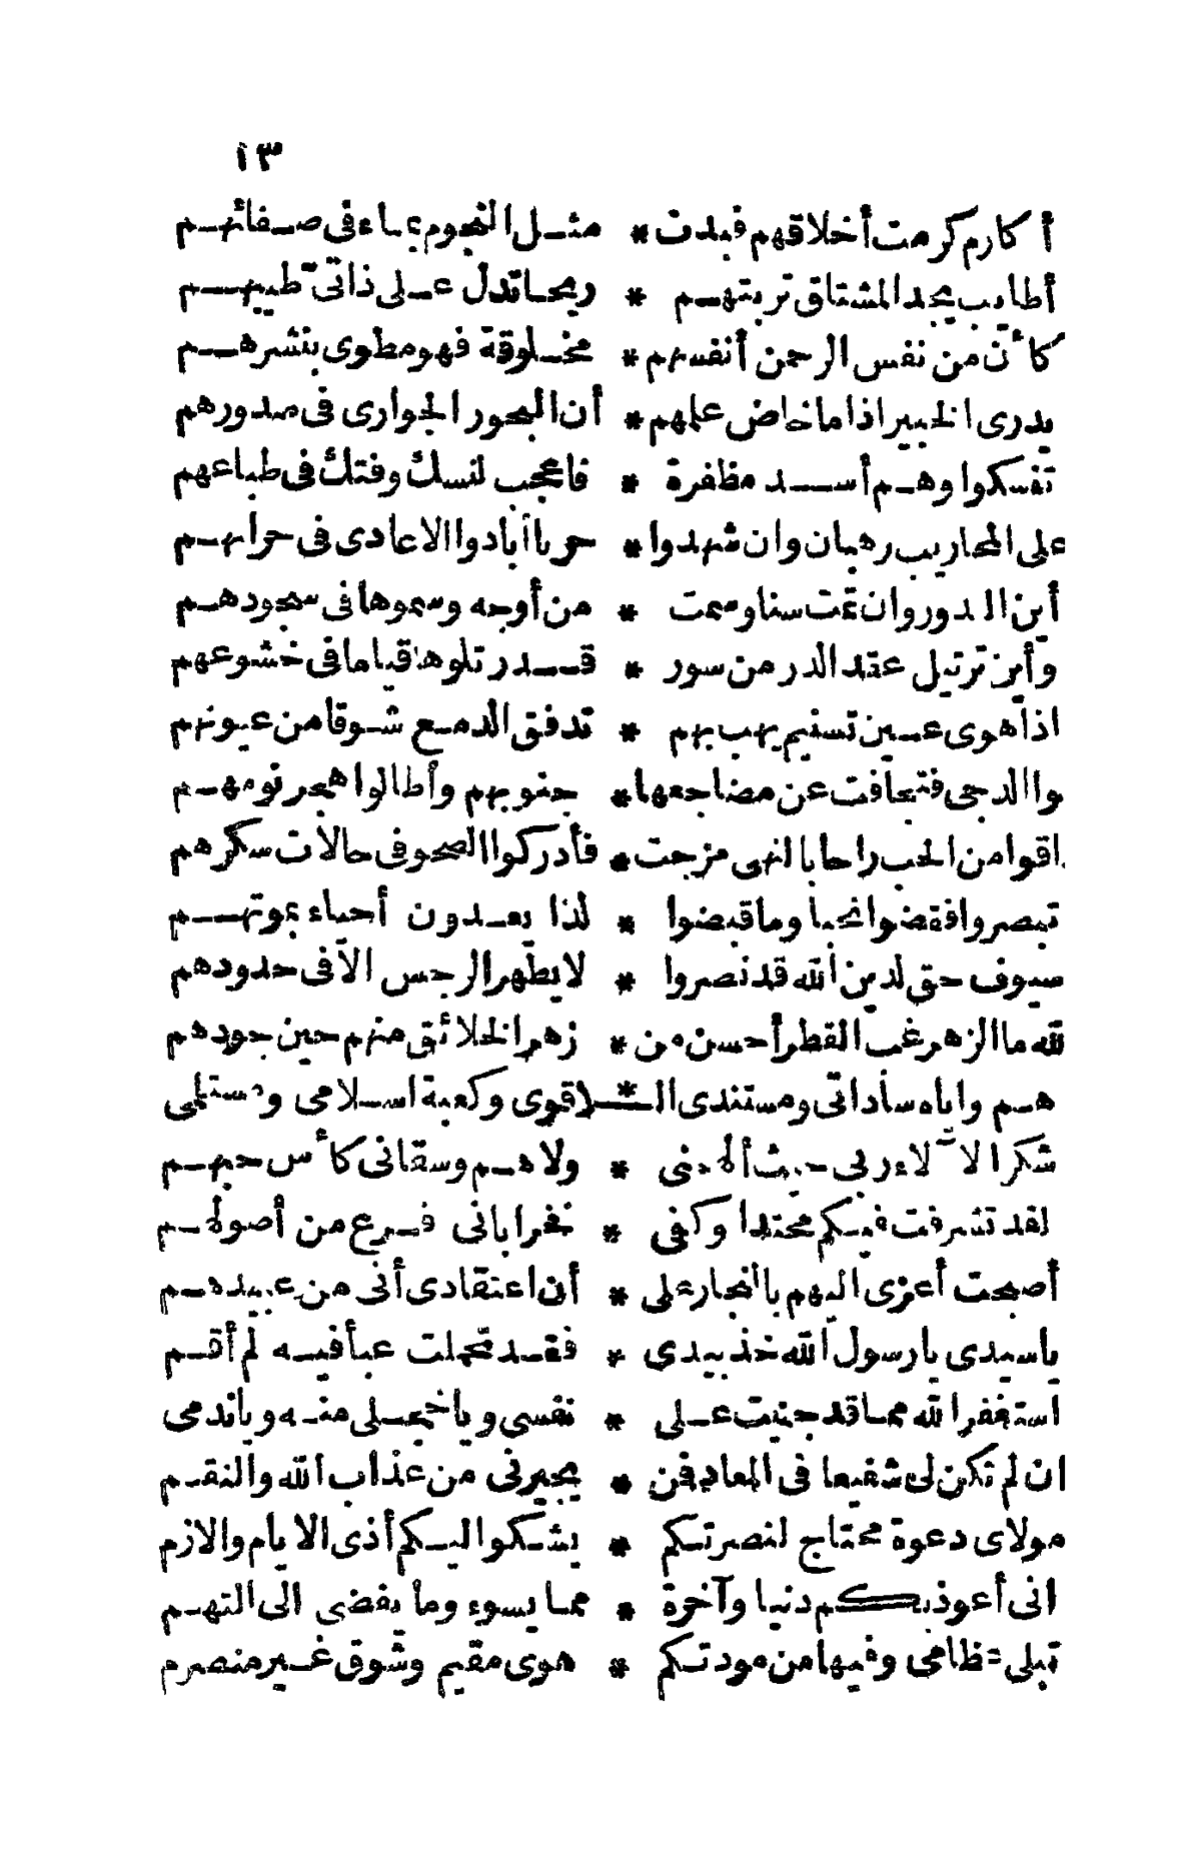 ١٣
أكارم كرمت أخلاقهم فبدت * مثل النجوم بماء فى صفائهم
أطايب يجد المشتاق تربتهم * ريحا تدل على ذاتى طيبهم
كأن من نفس الرحمن أنفسهم * مخلوقة فهو مطوى بنشرهم
يدرى الخبير اذا ما خاض علمهم * أن البحور الجوارى فى صدورهم
تنسكوا وهم أسد مظفرة * فاعجب لنسك وفتك فى طباعهم
على المحاريب رهبان وان شهدوا * حربا أبادوا الاعادى فى حرابهم
أين البدور وان تمت سنا وسمت * من أوجه وسموها فى سجودهم
وأين ترتيل عقد الدر من سور * قد رتلوها قياما فى خشوعهم
اذا هوى عين تسنيم يهب بهم * تدفق الدمع شوقا من عيونهم
وا الدجى فتجافت عن مضاجعها * جنوبهم وأطالوا هجر نومهم
اقوا من الحب راحا بالنهى مزجت * فأدركوا الصحو فى حالات سكرهم
تبصروا فقضوا نحبا وما قبضوا * لذا يعدون أحياء بموتهم
سيوف حق لدين الله قد نصروا * لا يطهر الرجس الا فى حدودهم
لله ما الزهر غب القطر أحسن من * زهر الخلائق منهم حين جودهم
هم واياه ساداتى ومستندى الـ * اقوى وكعبة اسلامى ومستلمى
شكرا لآلاء ربى حيث ألهمنى * ولاهم وسقانى كأس حبهم
لقد تشرفت فيكم محتدا وكفى * فخرا بانى فرع من أصولهم
أصبحت أعزى اليهم بالنجار على * أن اعتقادى أنى من عبيدهم
يا سيدى يا رسول الله خذ بيدى * فقد تحملت عبأ فيه لم أقم
استغفر الله مما قد جنيت على * نفسى ويا خجلى منه ويا ندمى
ان لم تكن لى شفيعا فى المعاد فمن * يجيرنى من عذاب الله والنقم
مولاى دعوة محتاج لنصرتكم * يشكو اليكم أذى الايام والازم
انى أعوذ بكم دنيا وآخرة * مما يسوء وما يفضى الى التهم
تبلى عظامى وفيها من مودتكم * هوى مقيم وشوق غير منصرم